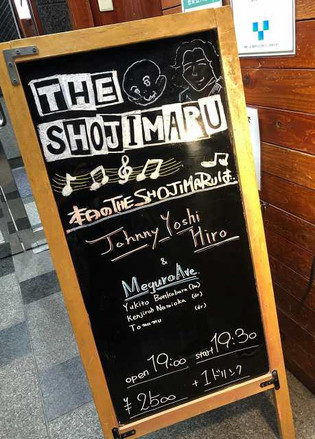 THE
SHOJIMARU
本日のTHE SHOJIMARUは、
Johnny Yoshi
Hiro
&
Meguro Ave.
Yukito
Kenjiroh Namioka (Gr)
Tomomu
open 19:00 start 19:30
¥2500 +1ドリンク